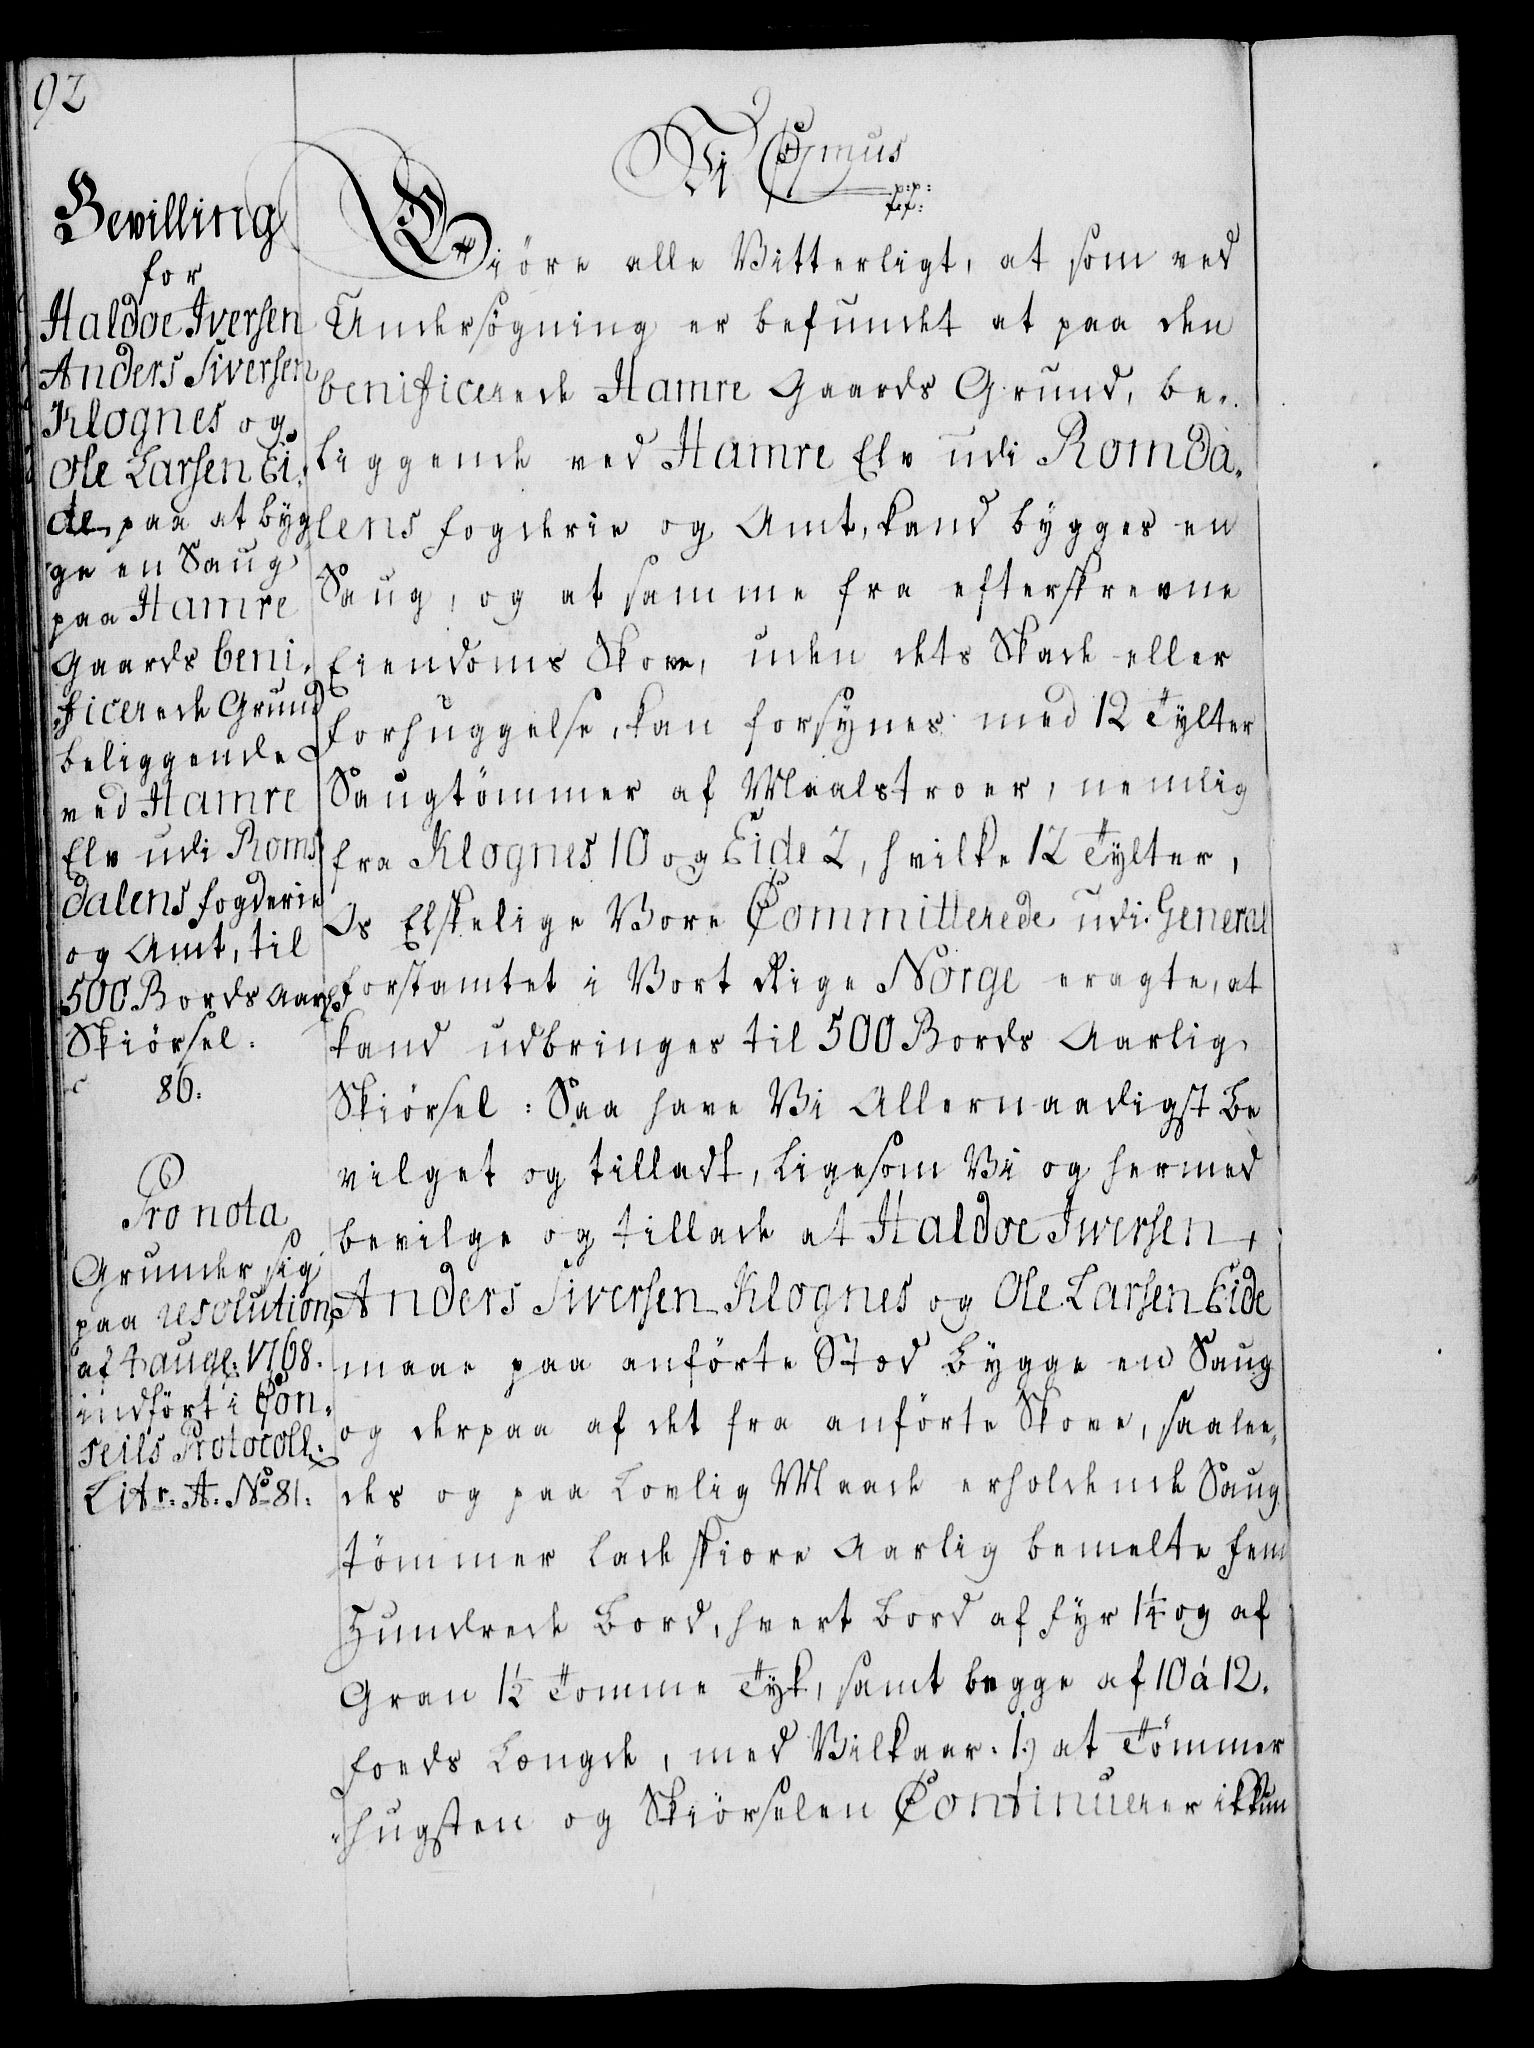 92
Bevilling
for
Haldoe Iversen
Anders Siversen
Klognes og
Ole Larsen Ei-
de paa at byg
ge en Saug
paa Hamre
Gaards beni-
ficerede Grund
beliggende
ved Hamre
Elv udi Roms
dalens fogderie
og Amt, til
500 Bords Aarl:
Skiörsel.
86.
Pro nota
Grunder sig
paa resolution
af 4 aug: 1768.
indfört i Con-
seils Protocoll.
Litr. A. No 81.
Vi C7mus
p:p:
Giöre alle Vitterligt, at som ved
Undersögning er befundet at paa den
benificerede Hamre Gaards Grund, be-
liggende ved Hamre Elv udi Romda-
lens fogderie og Amt, kand bygges en
Saug, og at samme fra efterskrevne
Eiendoms Skove, uden dets Skade eller
forhuggelse, kan forsynes med 12 Tylter
Saugtömmer af Maalstroer, nemlig
fra Klognes 10 og Eide 2, hvilke 12 Tylter,
Os Elskelige Vore Committerede udi General
forstamtet i Vort Rige Norge eragte, at
kand udbringes til 500 Bords Aarlig
Skiörsel: Saa have Vi Allernaadigst be
vilget og tilladt, ligesom Vi og hermed
bevilge og tillade at Haldoe Iversen,
Anders Siversen Klognes og Ole Larsen Eide
maae paa anförte Sted bygge en Saug
og derpaa af det fra anförte Skove, saalee-
des og paa lovlig Maade erholdende Saug
tömmer lade skiære Aarlig bemelte fem
Hundrede Bord, hvert Bord af fyr 1¼ og af
Gran 1½ Tomme Tyk, samt begge af 10 á 12.
foeds Længde, med Vilkaar. 1.) at Tömmer
hugsten og Skiörselen Continuerer ikkun